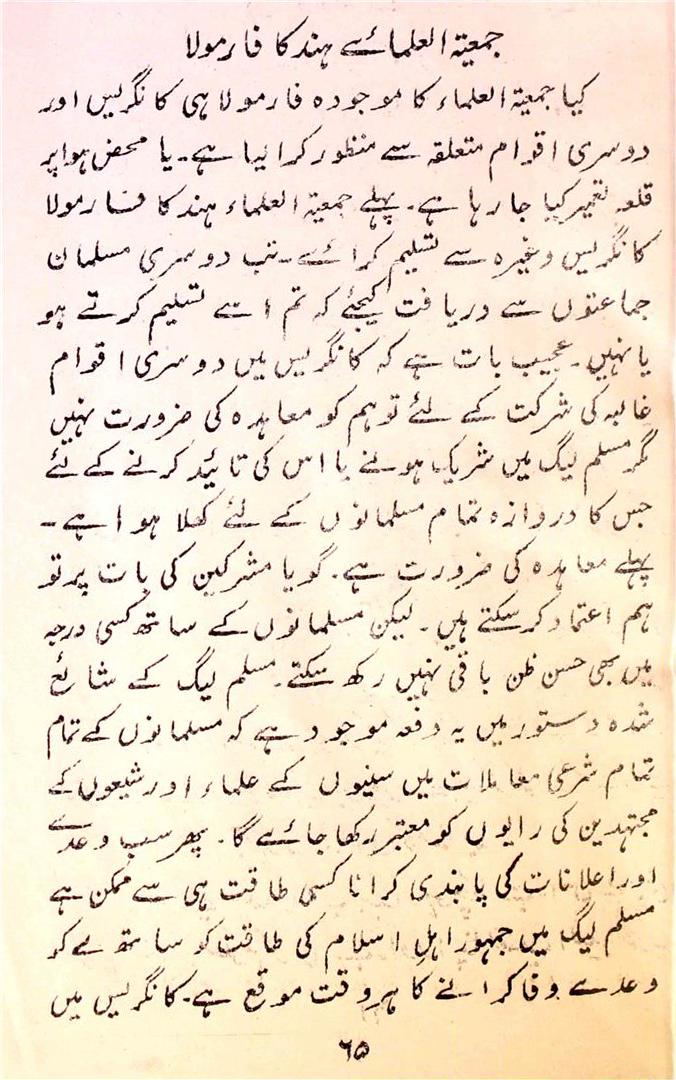 جمعیۃ العلمائے ہند کا فارمولا
کیا جمعیۃ العلماء کا موجودہ فارمولا ہی کانگریس اور
دوسری اقوام متعلقہ سے منظور کرا لیا ہے۔ یا محض ہوا پر
قلعہ تعمیر کیا جا رہا ہے۔ پہلے جمعیۃ العلماء ہند کا فارمولا
کانگریس وغیرہ سے تسلیم کرائے۔ تب دوسری مسلمان
جماعتوں سے دریافت کیجئے کہ تم اسے تسلیم کرتے ہو
یا نہیں۔ عجیب بات ہے کہ کانگریس میں دوسری اقوام
غالبہ کی شرکت کے لئے تو ہم کو معاہدہ کی ضرورت نہیں
مگر مسلم لیگ میں شریک ہونے یا اس کی تائید کرنے کے لئے
جس کا دروازہ تمام مسلمانوں کے لئے کھلا ہوا ہے۔
پہلے معاہدہ کی ضرورت ہے۔ گویا مشرکین کی بات پر تو
ہم اعتماد کر سکتے ہیں۔ لیکن مسلمانوں کے ساتھ کسی درجہ
میں بھی حسن ظن باقی نہیں رکھ سکتے۔ مسلم لیگ کے شائع
شدہ دستور میں یہ دفعہ موجود ہے کہ مسلمانوں کے تمام
تمام شرعی معاملات میں سنیوں کے علماء اور شیعوں کے
مجتہدین کی رایوں کو معتبر رکھا جائے گا۔ پھر سب وعدے
اور اعلانات کی پابندی کرانا کسی طاقت ہی سے ممکن ہے
مسلم لیگ میں جمہور اہلِ اسلام کی طاقت کو ساتھ لے کو
وعدے وفا کرانے کا ہر وقت موقع ہے۔ کانگریس میں
۶۵